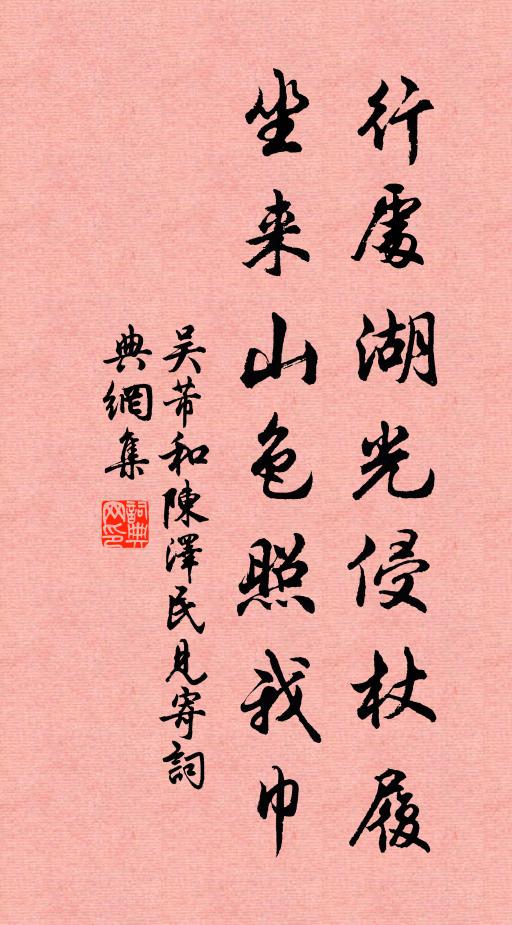 行處湖光侵杖履
坐来山色照我巾
吴芾和陳澤民見寄詞
典網集
詞典网印